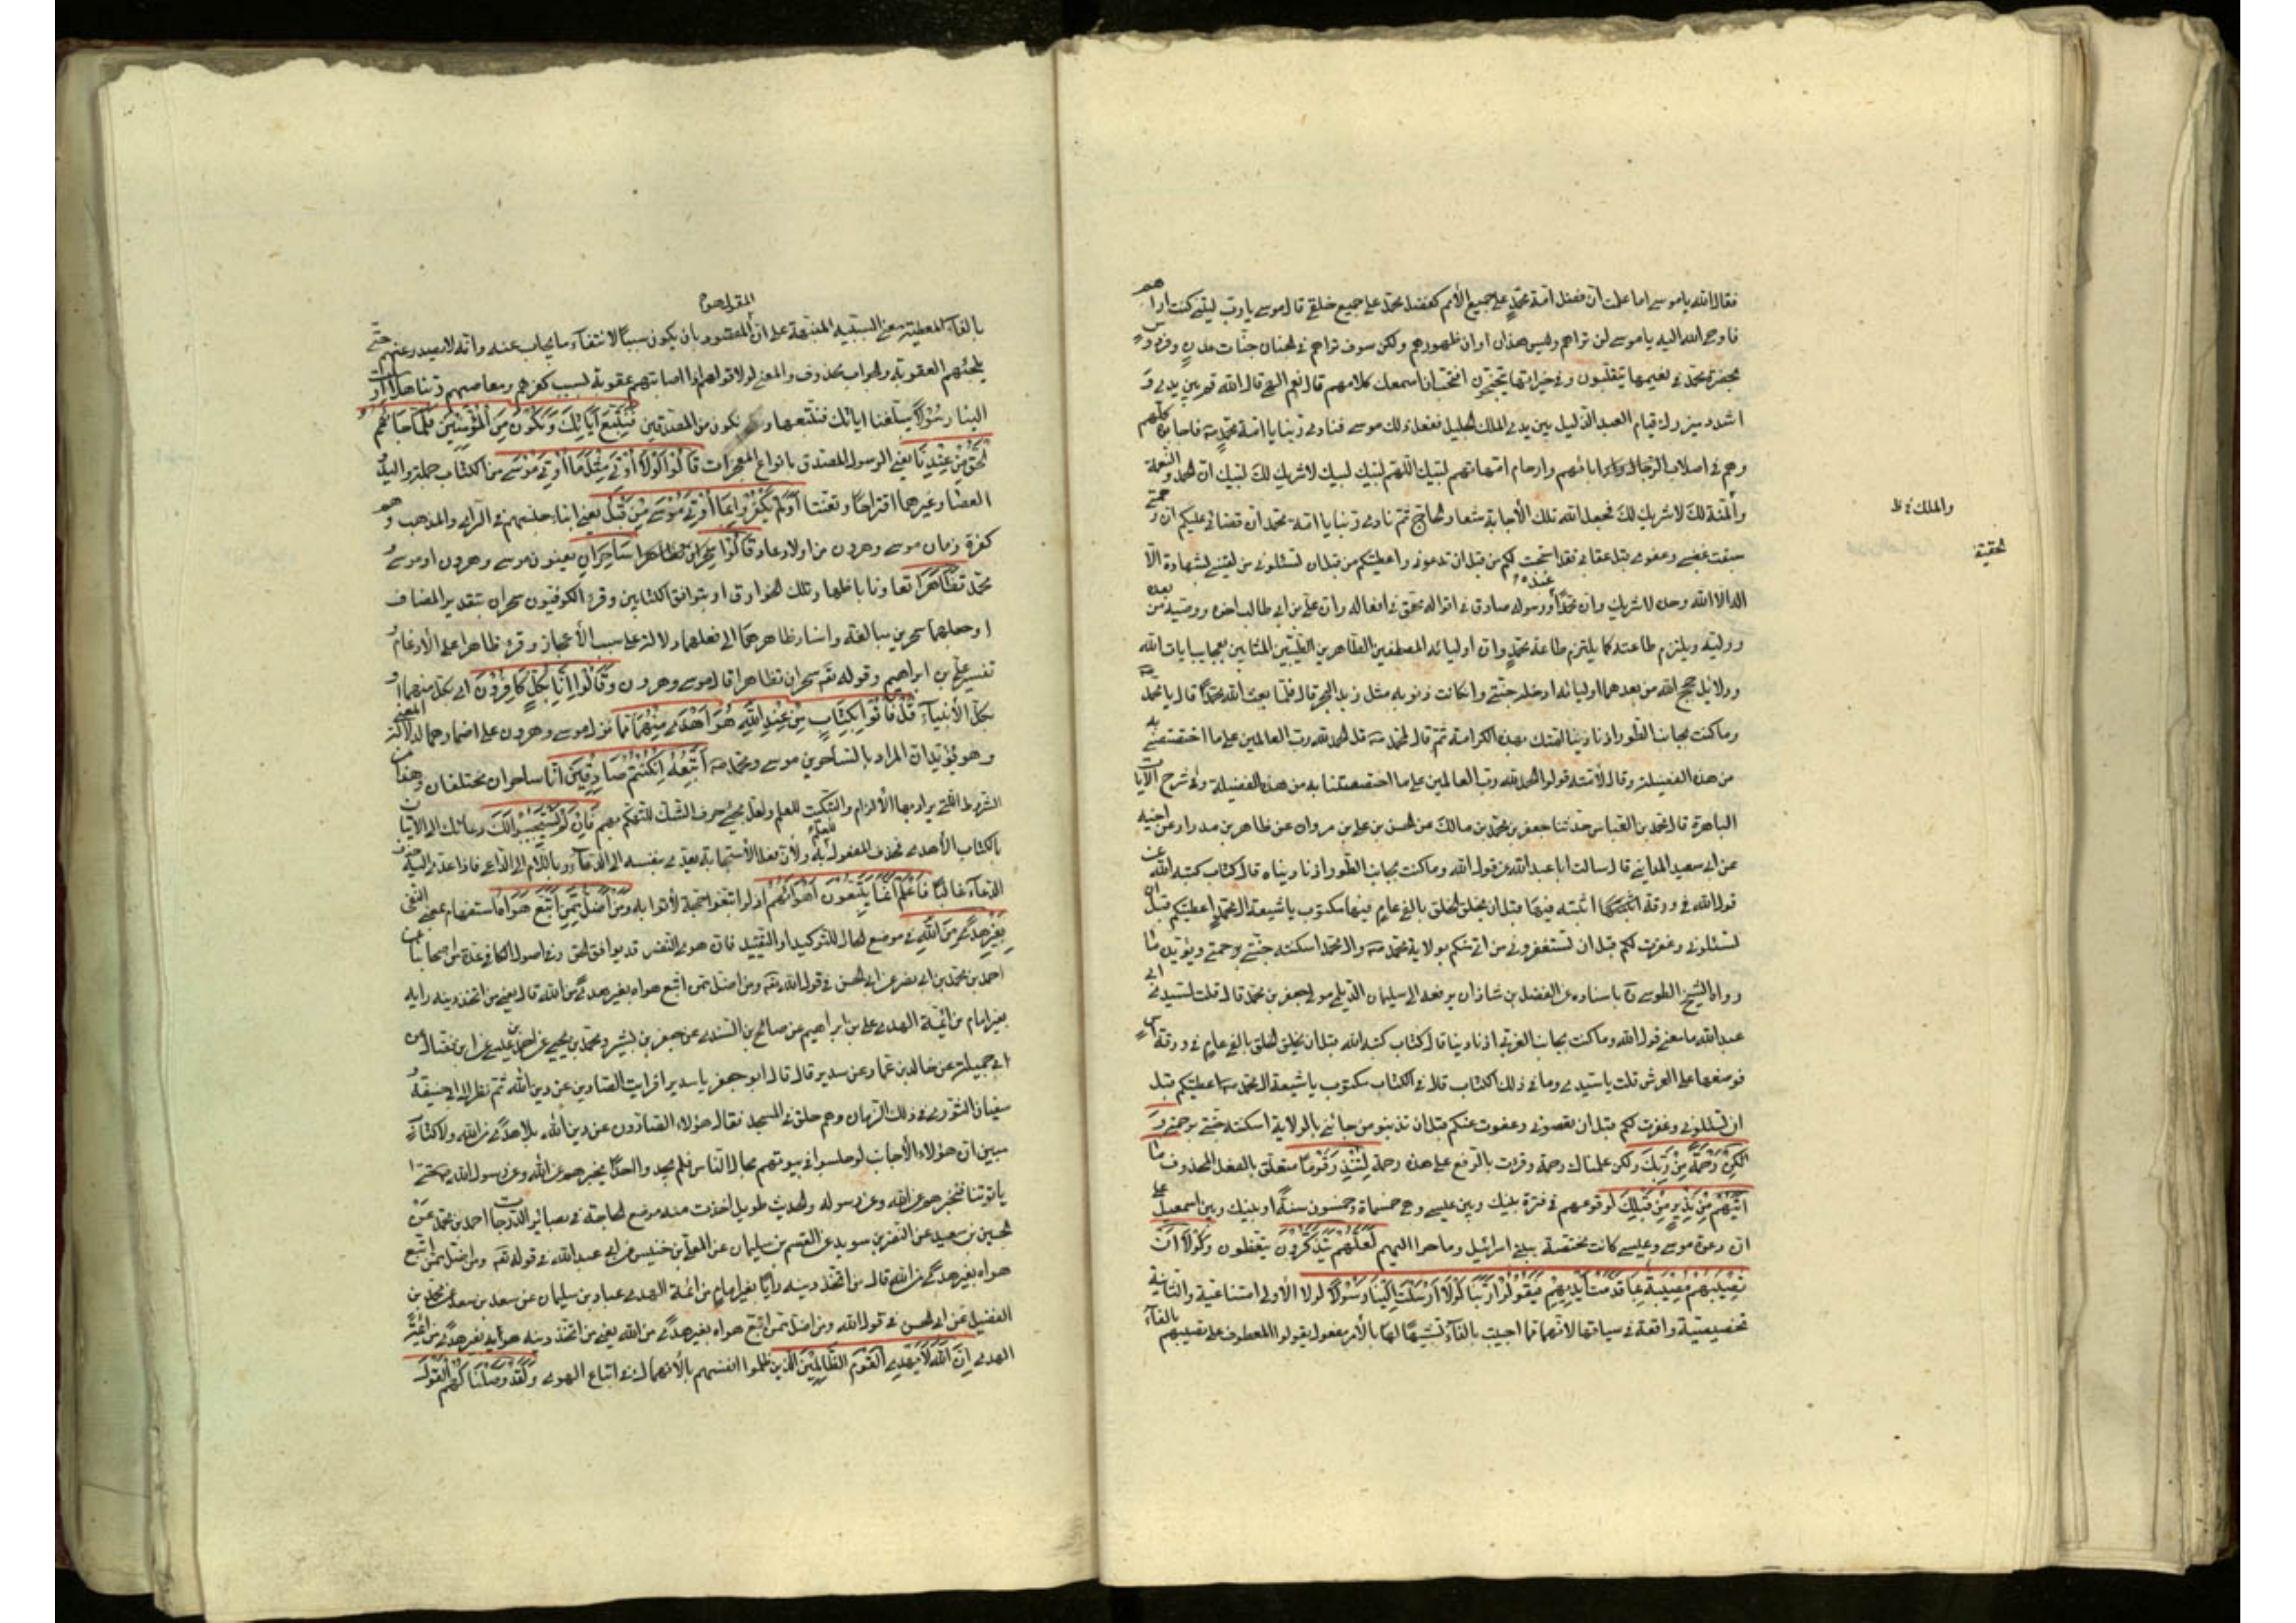 فقال الله يا موسى اما علمت ان فضل امة محمد على جميع الأمم كفضل محمد على جميع خلقي قال موسى يا رب ليتني كنت اراهم
فاوحى الله اليه يا موسى لن تراهم وليس هذا اوان ظهورهم ولكن سوف تراهم في الجنان جنات عدن وفردوس
بحضرة محمد في نعيمها يتقلبون وفي خيراتها يتبحبحون افتحب ان اسمعك كلامهم قال نعم الهي قال الله قم بين يدي و
اشدد ميزرك قيام العبد الذليل بين يدي الملك الجليل ففعل ذلك موسى فنادى ربنا يا امة محمد فاجابوه كلهم
وهم في اصلاب الرجال ابائهم وارحام امهاتهم لبيك اللهم لبيك لبيك لا شريك لك لبيك ان الحمد والنعمة
والمنة لك لا شريك لك فجعل الله تلك الأجابة شعار الحاج ثم نادى ربنا يا امة محمد ان قضائي عليكم ان رحمتي
والملك خ ظ
سبقت غضبي وعفوي قبل عقابي فقد استجبت لكم من قبل ان تدعوني واعطيتكم من قبل ان تسئلوني من لقيني بشهادة الا
اله الا الله وحده لا شريك وان محمدا عبده ورسوله صادق في اقواله محق في افعاله وان علي بن ابي طالب اخوه ووصيه من بعده
ووليه ويلتزم طاعته كما يلتزم طاعة محمد وان اوليائه المصطفين الطاهرين الطيبين بعجايب ايات الله
ودلايل حجج الله من بعدهما اوليائه ادخله جنتي وان كانت ذنوبه مثل زبد البحر قال فلما بعث الله محمدا قال يا محمد
وما كنت بجانب الطور اذ نادينا امتك بهذه الكرامة ثم قال لمحمد قل الحمد لله رب العالمين على ما اختصصتني به
من هذه الفضيلة وقال لأمته قولوا الحمد لله رب العالمين على ما اختصصتنا به من هذه الفضيلة وفي شرح الآيات
الباهرة قال محمد بن العباس حدثنا جعفر بن محمد بن مالك عن الحسن بن علي بن مروان عن طاهر بن مدرار عن اخيه
عن ابي سعيد المدايني قال سالت ابا عبد الله عن قول الله وما كنت بجانب الطور اذ نادينا قال كتاب كتبه الله
في ورقة اثبته فيها قبل ان يخلق الخلق بالفي عام فيها مكتوب يا شيعة ال محمد اعطيتكم قبل ان
تسئلوني وغفرت لكم قبل ان تستغفروني من اتى منكم بولاية محمد وال محمد اسكنته جنتي برحمتي ويؤيده ما
رواه الشيخ الطوسي باسناده عن الفضل بن شاذان يرفعه الى سليمان الديلمي مولى جعفر بن محمد قال قلت لسيدي ابي
عبد الله ما معنى قول الله وما كنت بجانب الغربي اذ نادينا قال كتاب كتبه الله قبل ان يخلق الخلق بالفي عام في ورقة اس
فوضعها على العرش قلت يا سيدي وما في ذلك الكتاب قال في الكتاب مكتوب يا شيعة ال محمد اعطيتكم قبل
ان تسئلوني وغفرت لكم قبل ان تعصوني وعفوت عنكم قبل ان تذنبوا من جائني بالولاية اسكنته جنتي برحمتي و
لكن رحمة من ربك ولكن علمناك رحمة وقرئت بالرفع على هذه رحمة لتنذر قوما متعلق بالفعل المحذوف ما
اتيهم من نذير من قبلك لوقوعهم في فترة بينك وبين عيسى وهي خمسماة وخمسون سنة او بينك وبين اسمعيل على
ان دعوة موسى وعيسى كانت مختصة ببني اسرائيل وما حواليهم لعلهم يتذكرون يتعظون ولولا ان
تصيبهم مصيبة بما قدمت ايديهم فيقولوا ربنا لولا ارسلت الينا رسولا لولا الأولى امتناعية والثانية
تحضيضية واقعة في سياقها لانها مما اجيبت بالفاء تشبيها لها بالأمر مفعول يقولوا المعطوف على تصيبهم بالفاء
بالفاء المعطية معنى السببية المنبهة على ان القول هو المقصود بان يكون سببا لانتفاء ما يجاب عنه وانه لا يصدر عنهم حتى
يلجئهم العقوبة والجواب محذوف والمعنى لولا قولهم اذا اصابتهم عقوبة بسبب كفرهم ومعاصيهم ربنا هلا ارسلت
الينا رسولا يبلغنا اياتك فنتبعها ونكون من المصدقين فنتبع اياتك ونكون من المؤمنين فلما جائهم
الحق من عندنا يعني الرسول المصدق بانواع المعجزات قالوا لولا اوتي مثل ما اوتي موسى من الكتاب جملة واليد و
العصا وغيرهما اقتراحا وتعنتا اولم يكفروا بما اوتي موسى من قبل يعني ابناء جنسهم في الراي والمذهب وهم
كفرة زمان موسى وهرون من اولاد عاد قالوا سحران تظاهرا ساحران يعنون موسى وهرون او موسى و
محمد تظاهرا تعاونا باظهار تلك الخوارق او بتوافق الكتابين وقرء الكوفيون سحران بتقدير المضاف
او جعلهما سحرين مبالغة واسناد تظاهرهما الى فعلهما دلالة على سبب الأعجاز وقرئ ظاهرا على الأدغام و
تفسير علي بن ابراهيم وقوله سحران تظاهرا قال موسى وهرون وقالوا انا بكل كافرون اي بكل منهما او
بكل الأنبياء قل فاتوا بكتاب من عند الله هو اهدى منهما مما نزل على موسى وهرون على اضمارهما لدلالة المعنى
وهو يؤيد ان المراد بالساحرين موسى ومحمد اتبعه ان كنتم صادقين انا ساحران مختلفان وهذا من
الشروط التي يراد بها الألزام والتبكيت للعلم ولعل مجيء حرف الشك للتهكم بهم فان لم يستجيبوا لك دعائك الى الاتيان
بالكتاب الأهدى فحذف المفعول للعلم به ولأن فعل الأستجابة يعدى بنفسه الى الدعاء وباللام الى الداعي فاذا عدى اليه حذف
الدعاء غالبا فاعلم انما يتبعون اهوائهم اذ لو اتبعوا حجة لأتوا بها ومن اضل ممن اتبع هواه استفهام بمعنى النفي
بغير هدى من الله في موضع الحال للتوكيد او التقييد فان هوى النفس قد يوافق الحق وفي اصول الكافي عدة من اصحابنا عن
احمد بن محمد بن ابي نصر عن ابي الحسن في قول الله ومن اضل ممن اتبع هواه بغير هدى من الله قال يعني من اتخذ دينه رايه
بغير امام من ائمة الهدى علي بن ابراهيم عن صالح بن السندي عن جعفر بن بشير ومحمد بن يحيى عن احمد بن عيسى عن ابن فضال عن
ابي جميلة عن خالد بن عمار عن سدير قال قال ابو جعفر يا سدير افرايت الصادين عن دين الله ثم نظر الى ابي حنيفة و
سفيان الثوري في ذلك الزمان وهم حلق في المسجد فقال هؤلاء الصادون عن دين الله بلا هدى من الله ولا كتاب
مبين ان هؤلاء الأخباث لو جلسوا في بيوتهم فجال الناس فلم يجدوا احدا يخبرهم عن الله وعن رسول الله حتى
ياتوننا فنخبرهم عن الله وعن رسوله والحديث طويل اخذت منه موضع الحاجة في بصائر الدرجات احمد بن محمد عن
الحسين بن سعيد عن النضر بن سويد عن القسم بن سليمان عن المعلى بن خنيس عن ابي عبد الله في قوله ومن اضل ممن اتبع
هواه بغير هدى من الله قال من اتخذ دينه رايا بغير امام من ائمة الهدى عباد بن سليمان عن سعد بن سعد عن محمد بن
الفضيل عن ابي الحسن في قول الله ومن اضل ممن اتبع هواه بغير هدى من الله يعني من اتخذ دينه هواه بغير هدى من ائمة
الهدى ان الله لا يهدي القوم الظالمين الذين ظلموا انفسهم بالأنهماك في اتباع الهوى ولقد وصلنا لهم القول